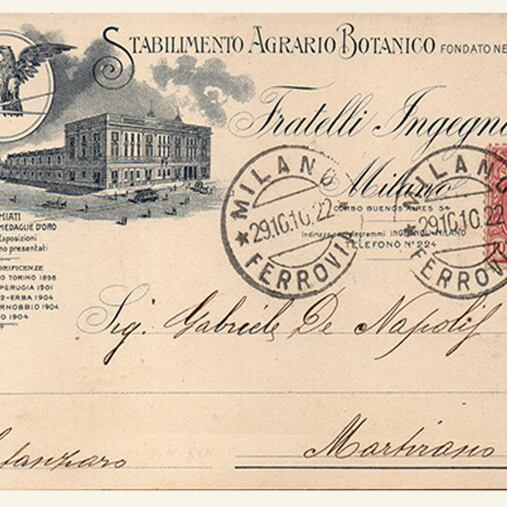 STABILIMENTO AGRARIO BOTANICO FONDATO NE
Fratelli Ingegno
Milano
CORSO BUENOS AIRES 54
Indirizzo telegrammi INGEGNOLI-MILANO
TELEFONO Nº 224
MILANO
29.10.10.22
★ FERROVIA
MILANO
29.10.10.22
★ FERROVIA
MIATI
MEDAGLIE D'ORO
Esposizioni
no presentati
ORIFICENZE
O TORINO 1898
PERUGIA 1901
-ERBA 1904
RNOBBIO 1904
O 1904
Sig. Gabriele De Napoli
Martirano
tanzaro